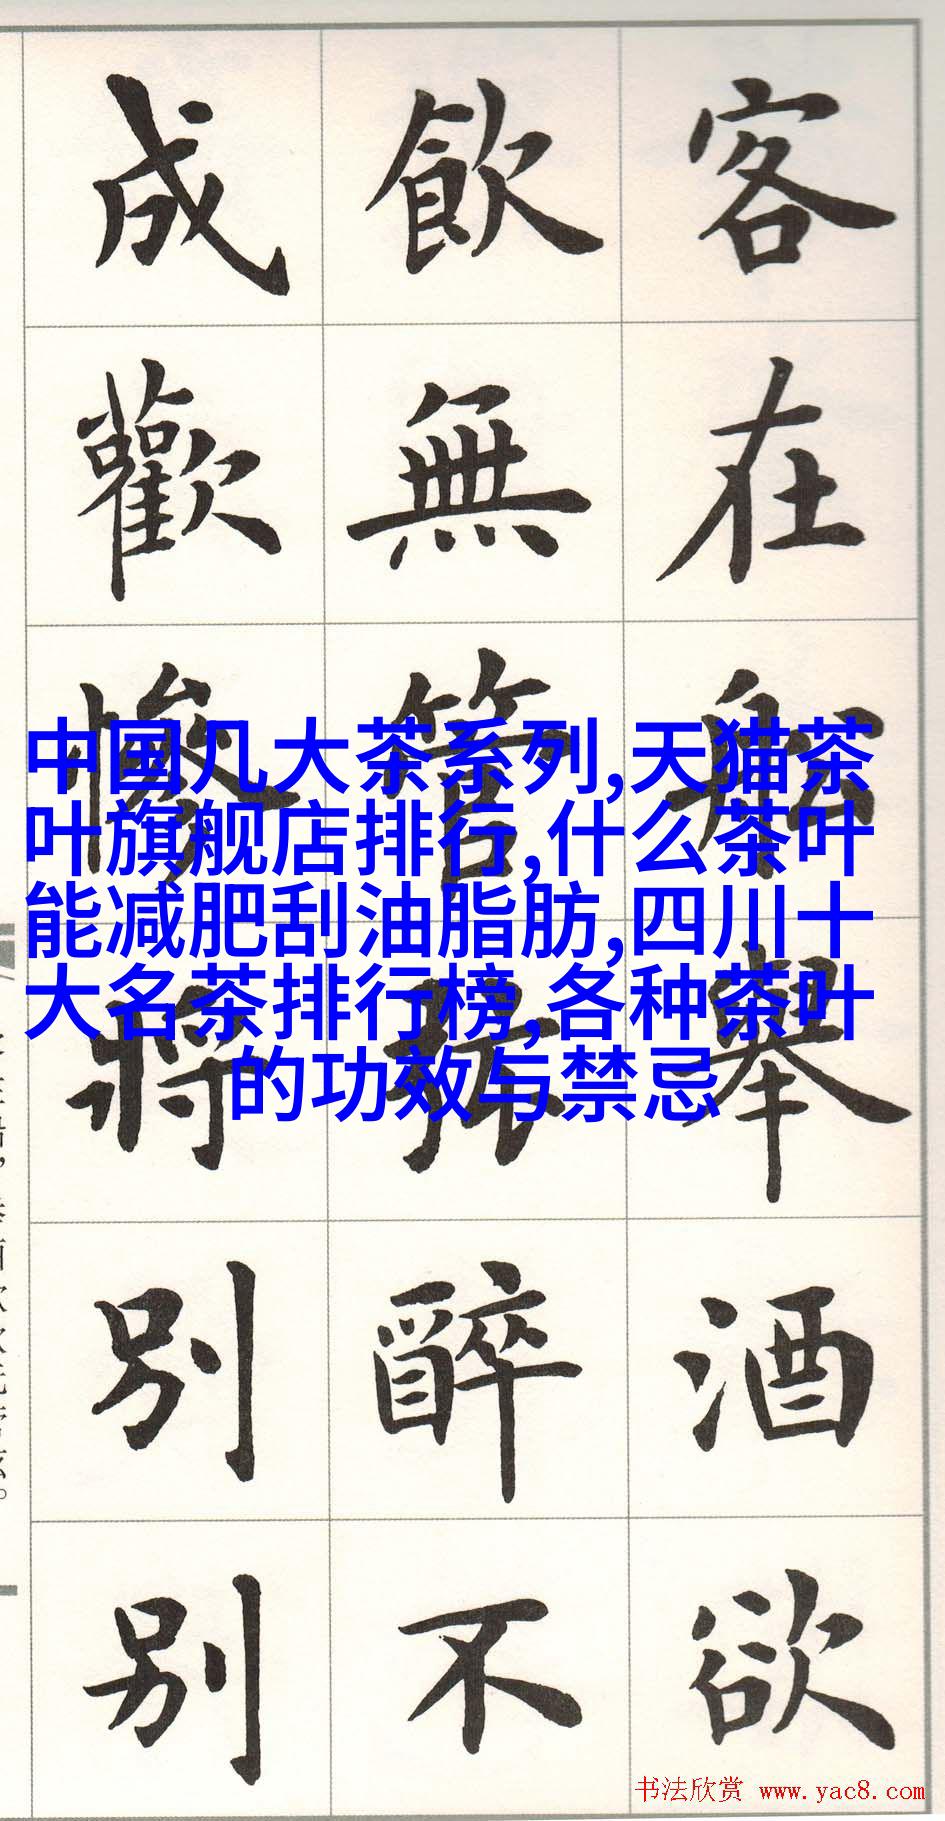 客在船舉酒欲
飲無管弦醉不
成歡慘將別別
中国几大茶系列,天猫茶
叶旗舰店排行,什么茶叶
能减肥刮油脂肪,四川十
大名茶排行榜,各种茶叶
的功效与禁忌
书法欣赏 www.yac8.com